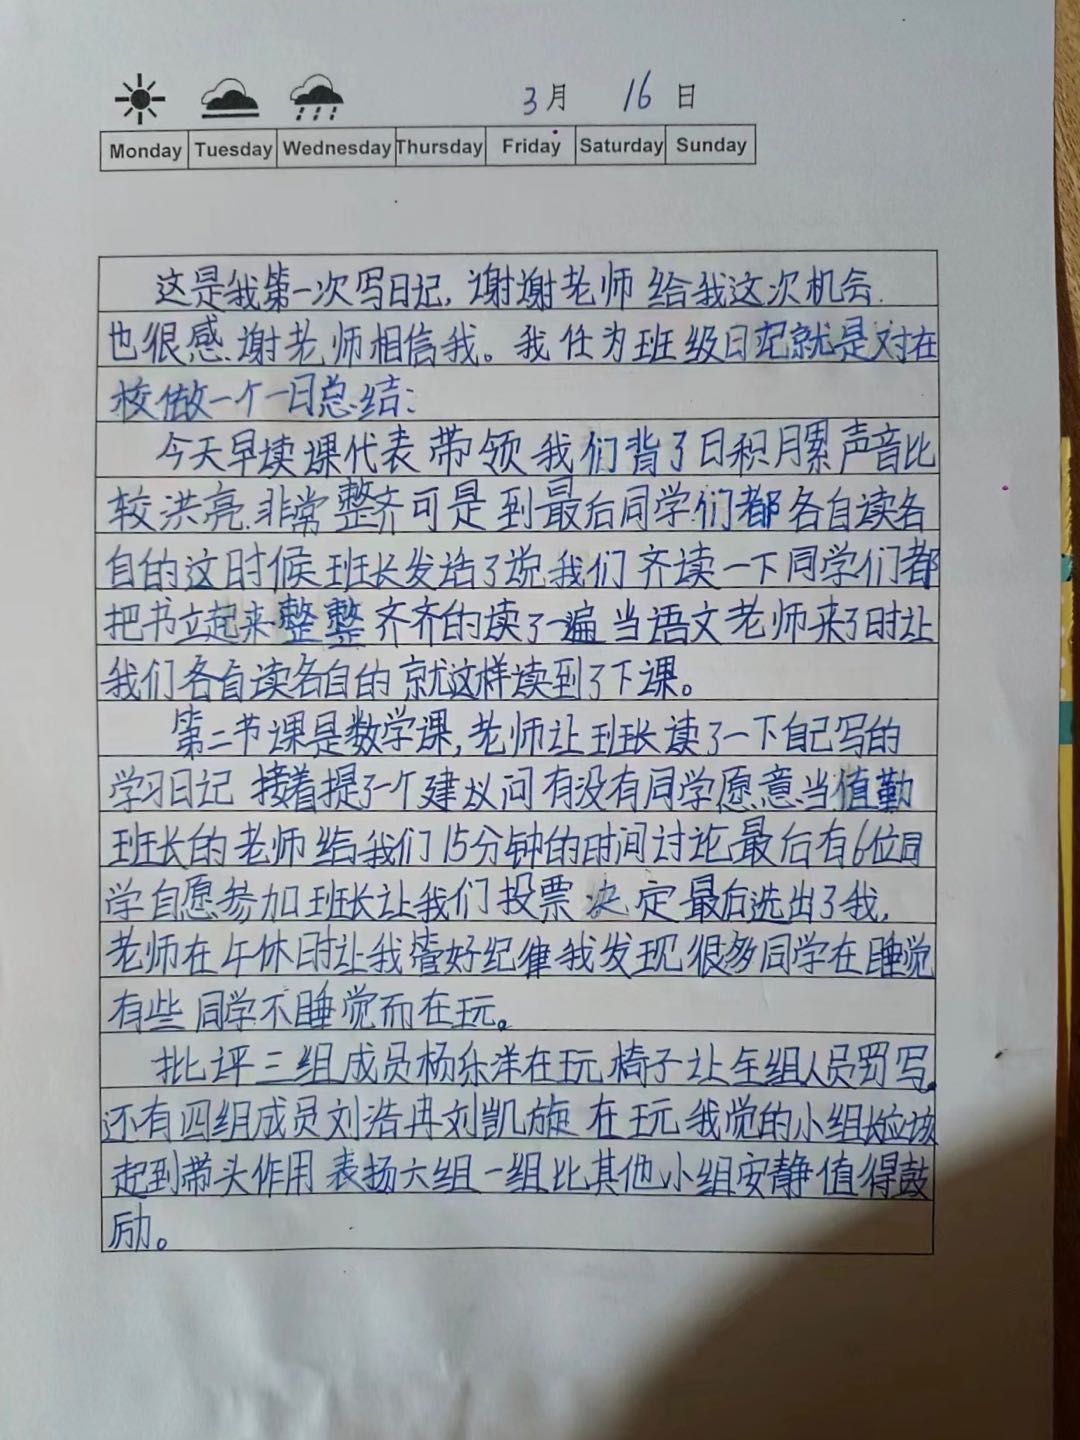 3月 16日
Monday Tuesday Wednesday Thursday Friday Saturday Sunday
这是我第一次写日记,谢谢老师给我这次机会.
也很感谢老师相信我。我任为班级日记就是对在
校做一个一日总结:
今天早读课代表带领我们背了日积月累声音比
较洪亮.非常整齐可是到最后同学们都各自读各
自的这时候班长发话了说我们齐读一下同学们都
把书立起来整整齐齐的读了一遍当语文老师来了时让
我们各自读各自的就这样读到了下课。
第二节课是数学课,老师让班长读了一下自己写的
学习日记接着提了一个建议问有没有同学愿意当值勤
班长的老师给我们15分钟的时间讨论最后有6位同
学自愿参加班长让我们投票决定最后选出了我,
老师在午休时让我管好纪律我发现很多同学在睡觉
有些同学不睡觉而在玩。
批评三组成员杨乐洋在玩椅子让全组人员罚写。
还有四组成员刘浩冉刘凯旋在玩我觉的小组长应该
起到带头作用表扬六组一组比其他小组安静值得鼓
励。